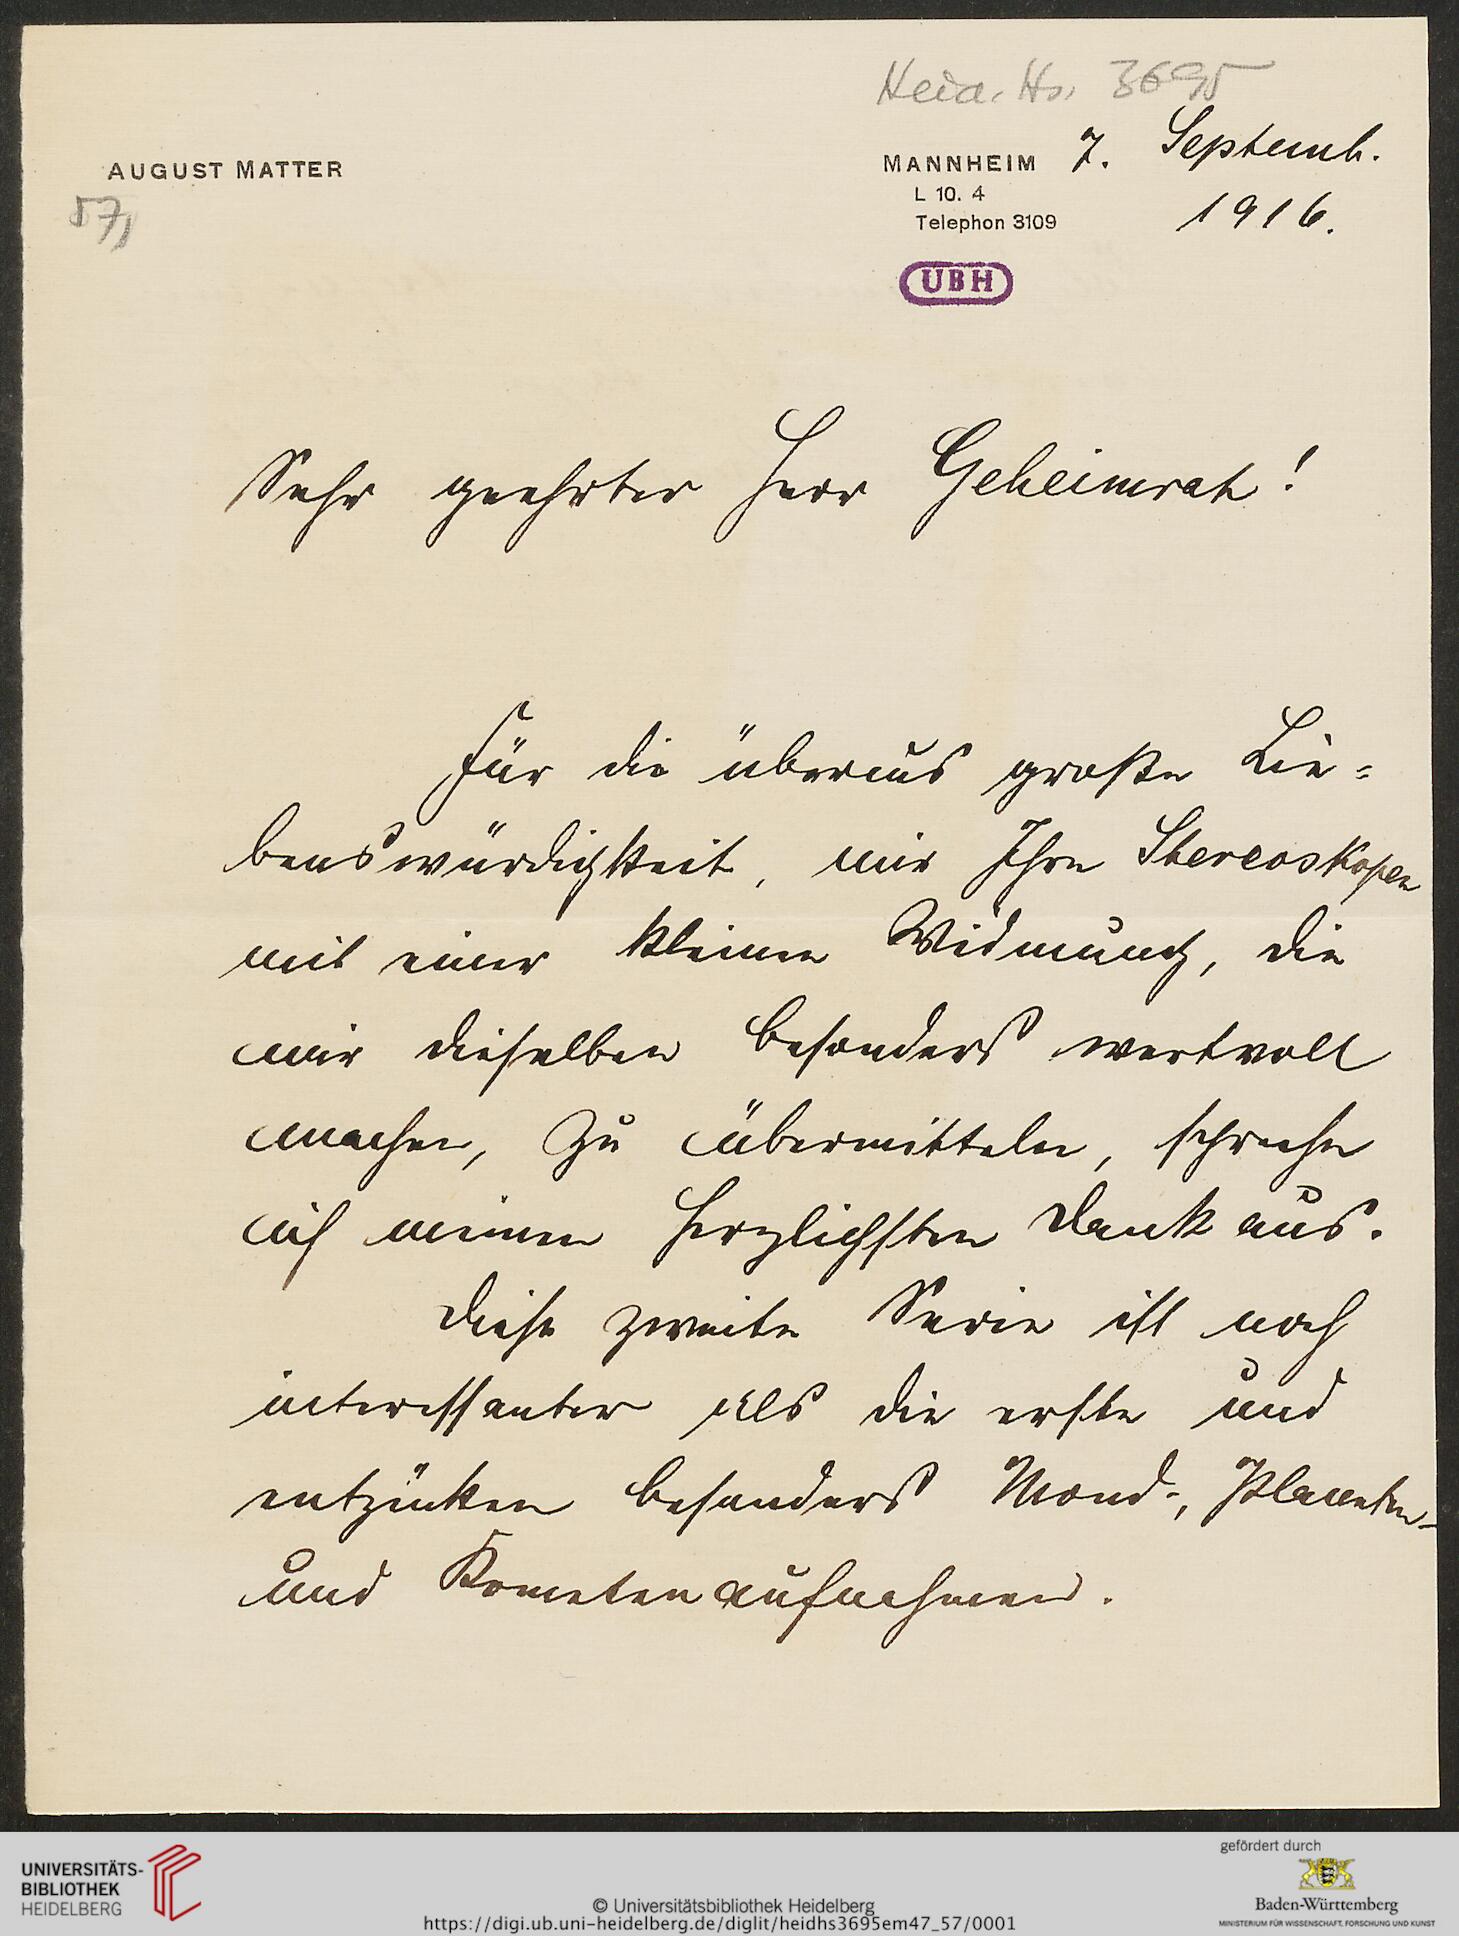 Heid. Hs. 3695
AUGUST MATTER
57,
MANNHEIM 7. Septemb.
L 10. 4
Telephon 3109 1916.
UBH
Sehr geehrter Herr Geheimrat!
Für die überaus große Lie=
benswürdigkeit, mir Ihre Stereoskopen
mit einer kleinen Widmung, die
mir dieselben besonders wertvoll
machen, zu übermitteln, spreche
ich meinen herzlichsten Dank aus.
Diese zweite Serie ist noch
interessanter als die erste und
entzücken besonders Mond-, Planeten-
und Kometenaufnahmen.
UNIVERSITÄTS-
BIBLIOTHEK
HEIDELBERG
© Universitätsbibliothek Heidelberg
https://digi.ub.uni-heidelberg.de/diglit/heidhs3695em47_57/0001
gefördert durch
Baden-Württemberg
MINISTERIUM FÜR WISSENSCHAFT, FORSCHUNG UND KUNST